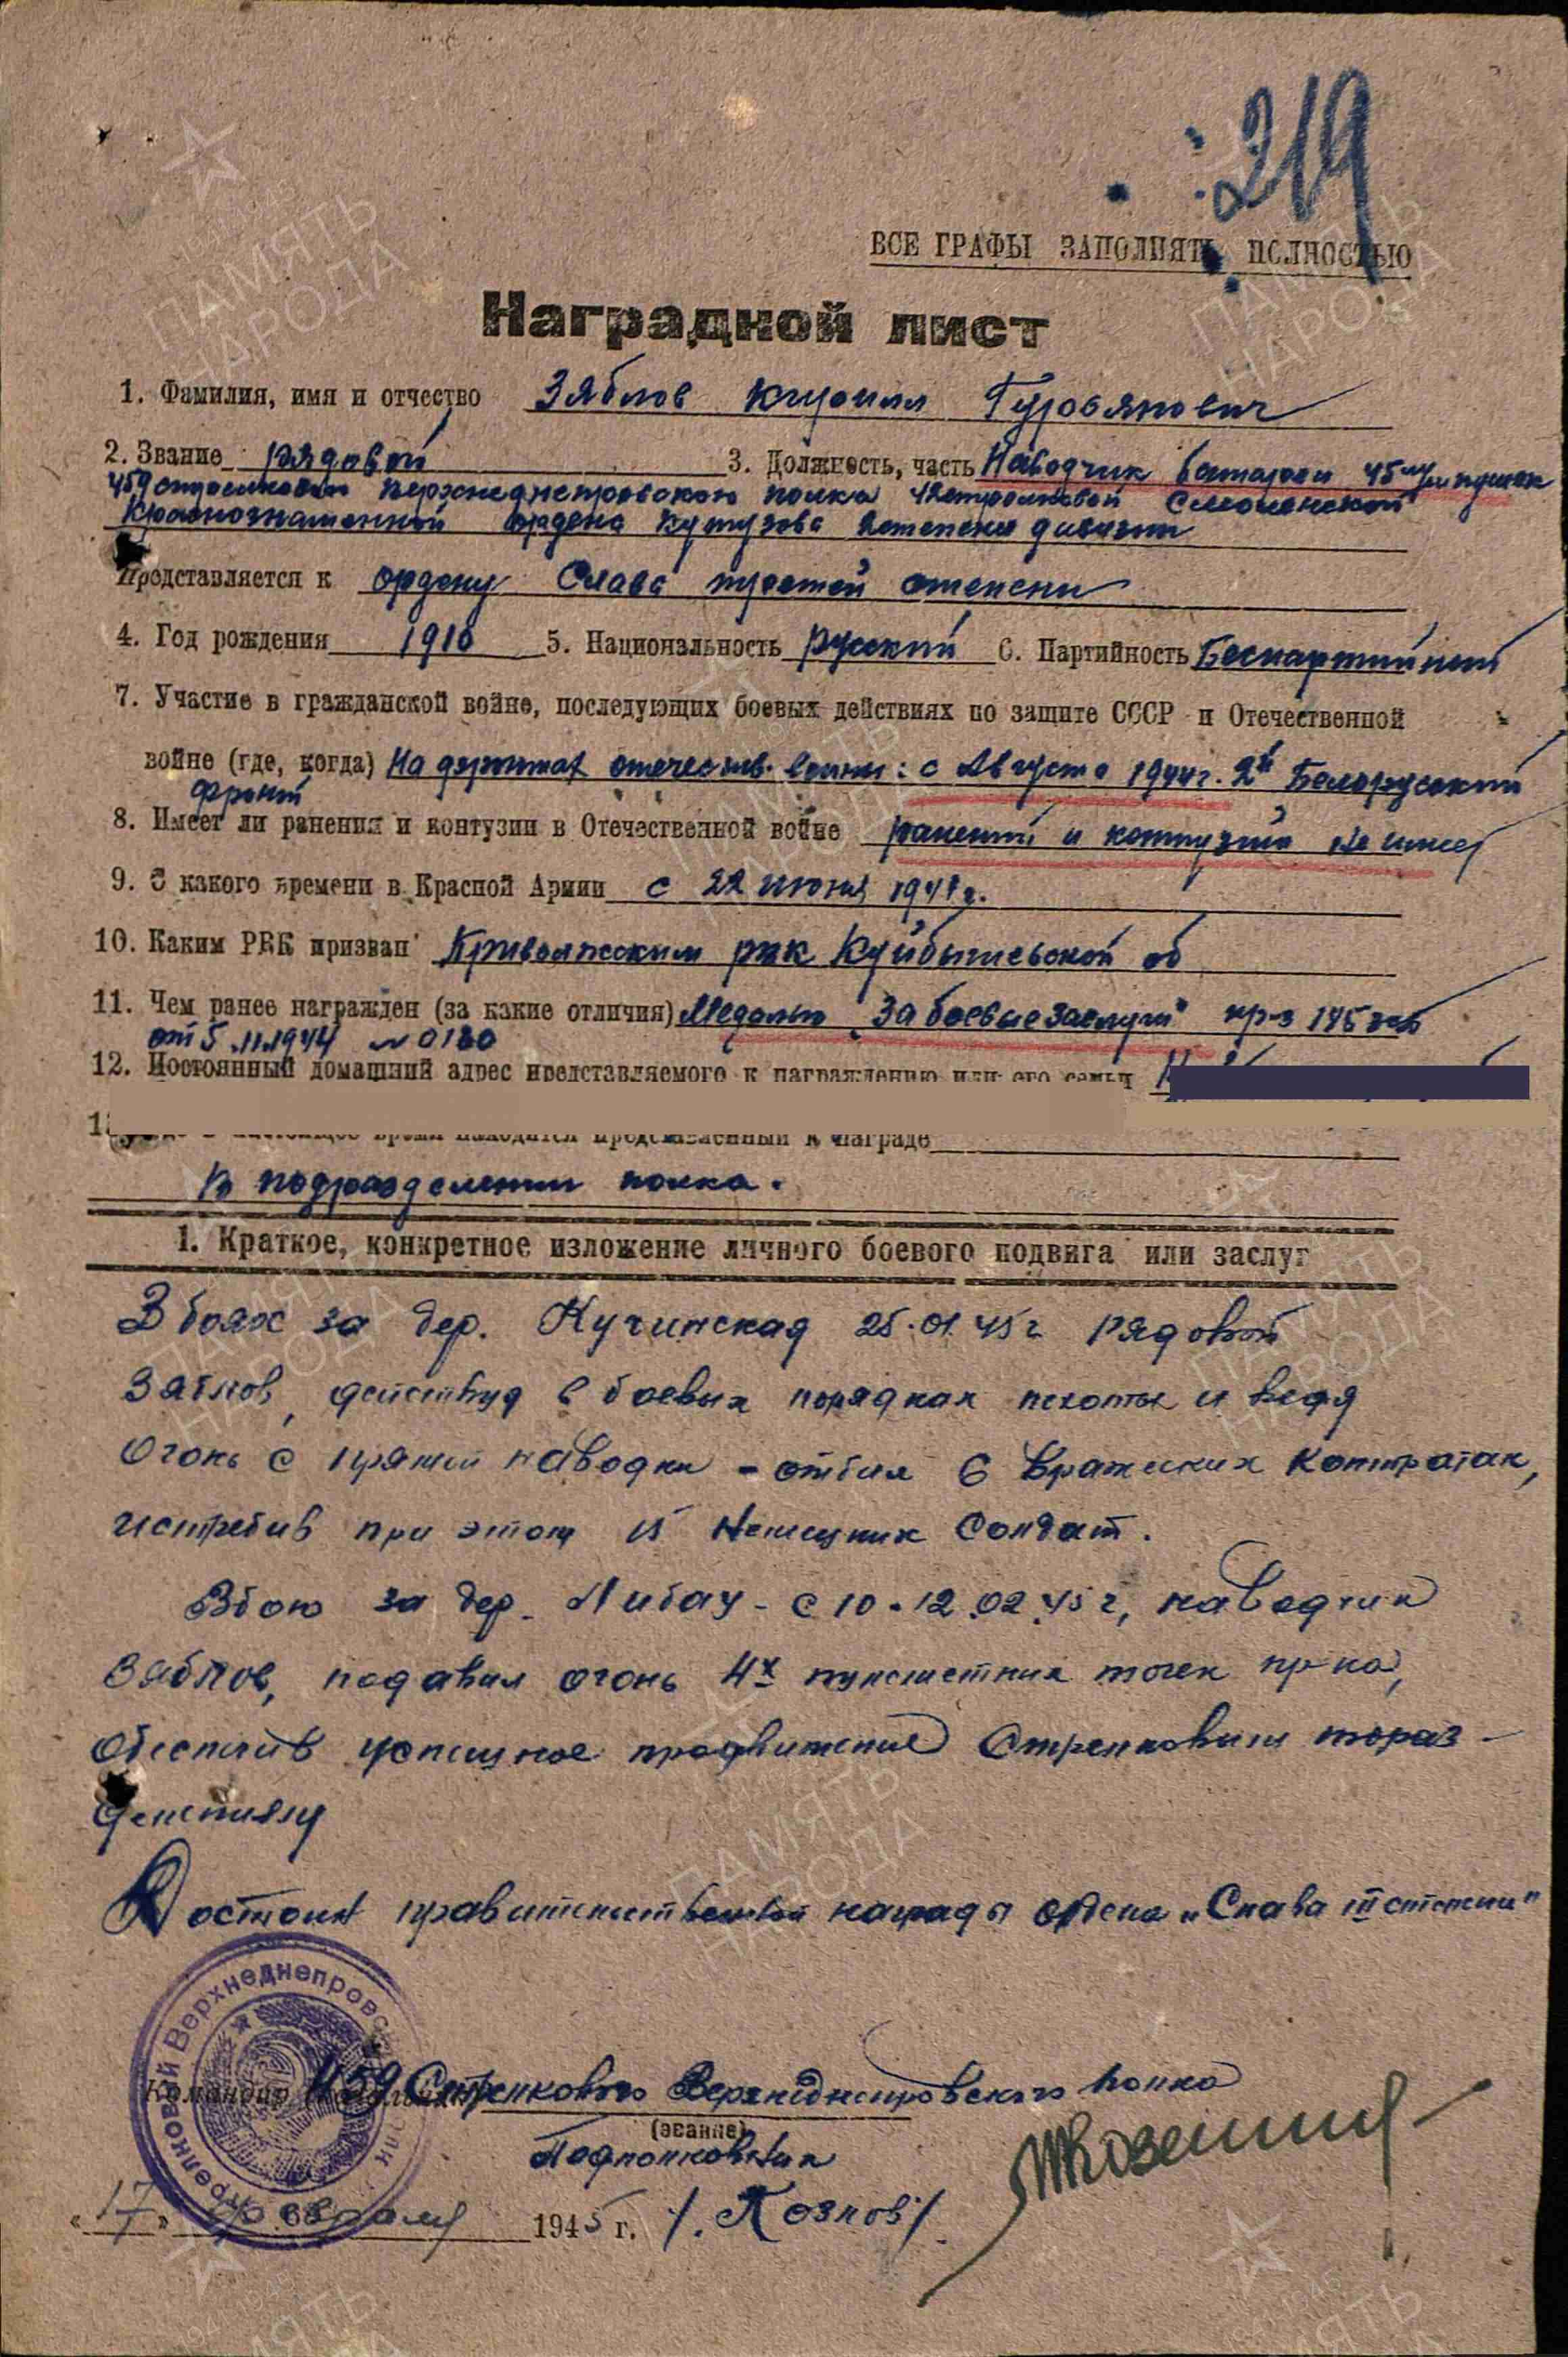 219
ВСЕ ГРАФЫ ЗАПОЛНЯТЬ ПОЛНОСТЬЮ
Наградной лист
1. Фамилия, имя и отчество Зяблов Кирилл Гурьянович
2. Звание рядовой 3. Должность, часть Наводчик батареи 45 мм пушек
459 стрелкового Верхнеднепровского полка 42 стрелковой Смоленской
Краснознаменной ордена Кутузова 2 степени дивизии
Представляется к ордену Слава третей степени
4. Год рождения 1910 5. Национальность русский 6. Партийность Беспартийный
7. Участие в гражданской войне, последующих боевых действиях по защите СССР и Отечественной
войне (где, когда) На фронтах отечеств. войны: с Августа 1944г. 2й Белорусский
фронт
8. Имеет ли ранения и контузии в Отечественной войне ранений и контузий не имеет
9. С какого времени в Красной Армии с 22 июня 1941г.
10. Каким РВК призван Приволжским рвк Куйбышевской об
11. Чем ранее награжден (за какие отличия) Медалью "За боевые заслуги" пр-з
от 5.11.1944 № 0180
12. Постоянный домашний адрес представляемого к награждению или его семьи
в настоящее время находится представленный к награде
В подразделении полка.
1. Краткое, конкретное изложение личного боевого подвига или заслуг
В боях за дер. Кучинская 25.01.45г рядовой
Зяблов, действуя в боевых порядках пехоты и ведя
огонь с прямой наводки - отбил 6 вражеских контратак,
истребив при этом 15 немецких солдат.
В бою за дер. Либау - с 10-12.02.45г, наводчик
Зяблов, подавил огонь 4х пулеметных точек пр-ка,
обеспечив успешное продвижение стрелковым подраз-
делениям
Достоин правительственной награды ордена "Слава III степени"
Командир 459 Стрелкового Верхнеднепровского полка
(звание)
Подполковник
"17" февраля 1945 г. /Козлов/
Стрелковый Верхнеднепровск
ПАМЯТЬ НАРОДА